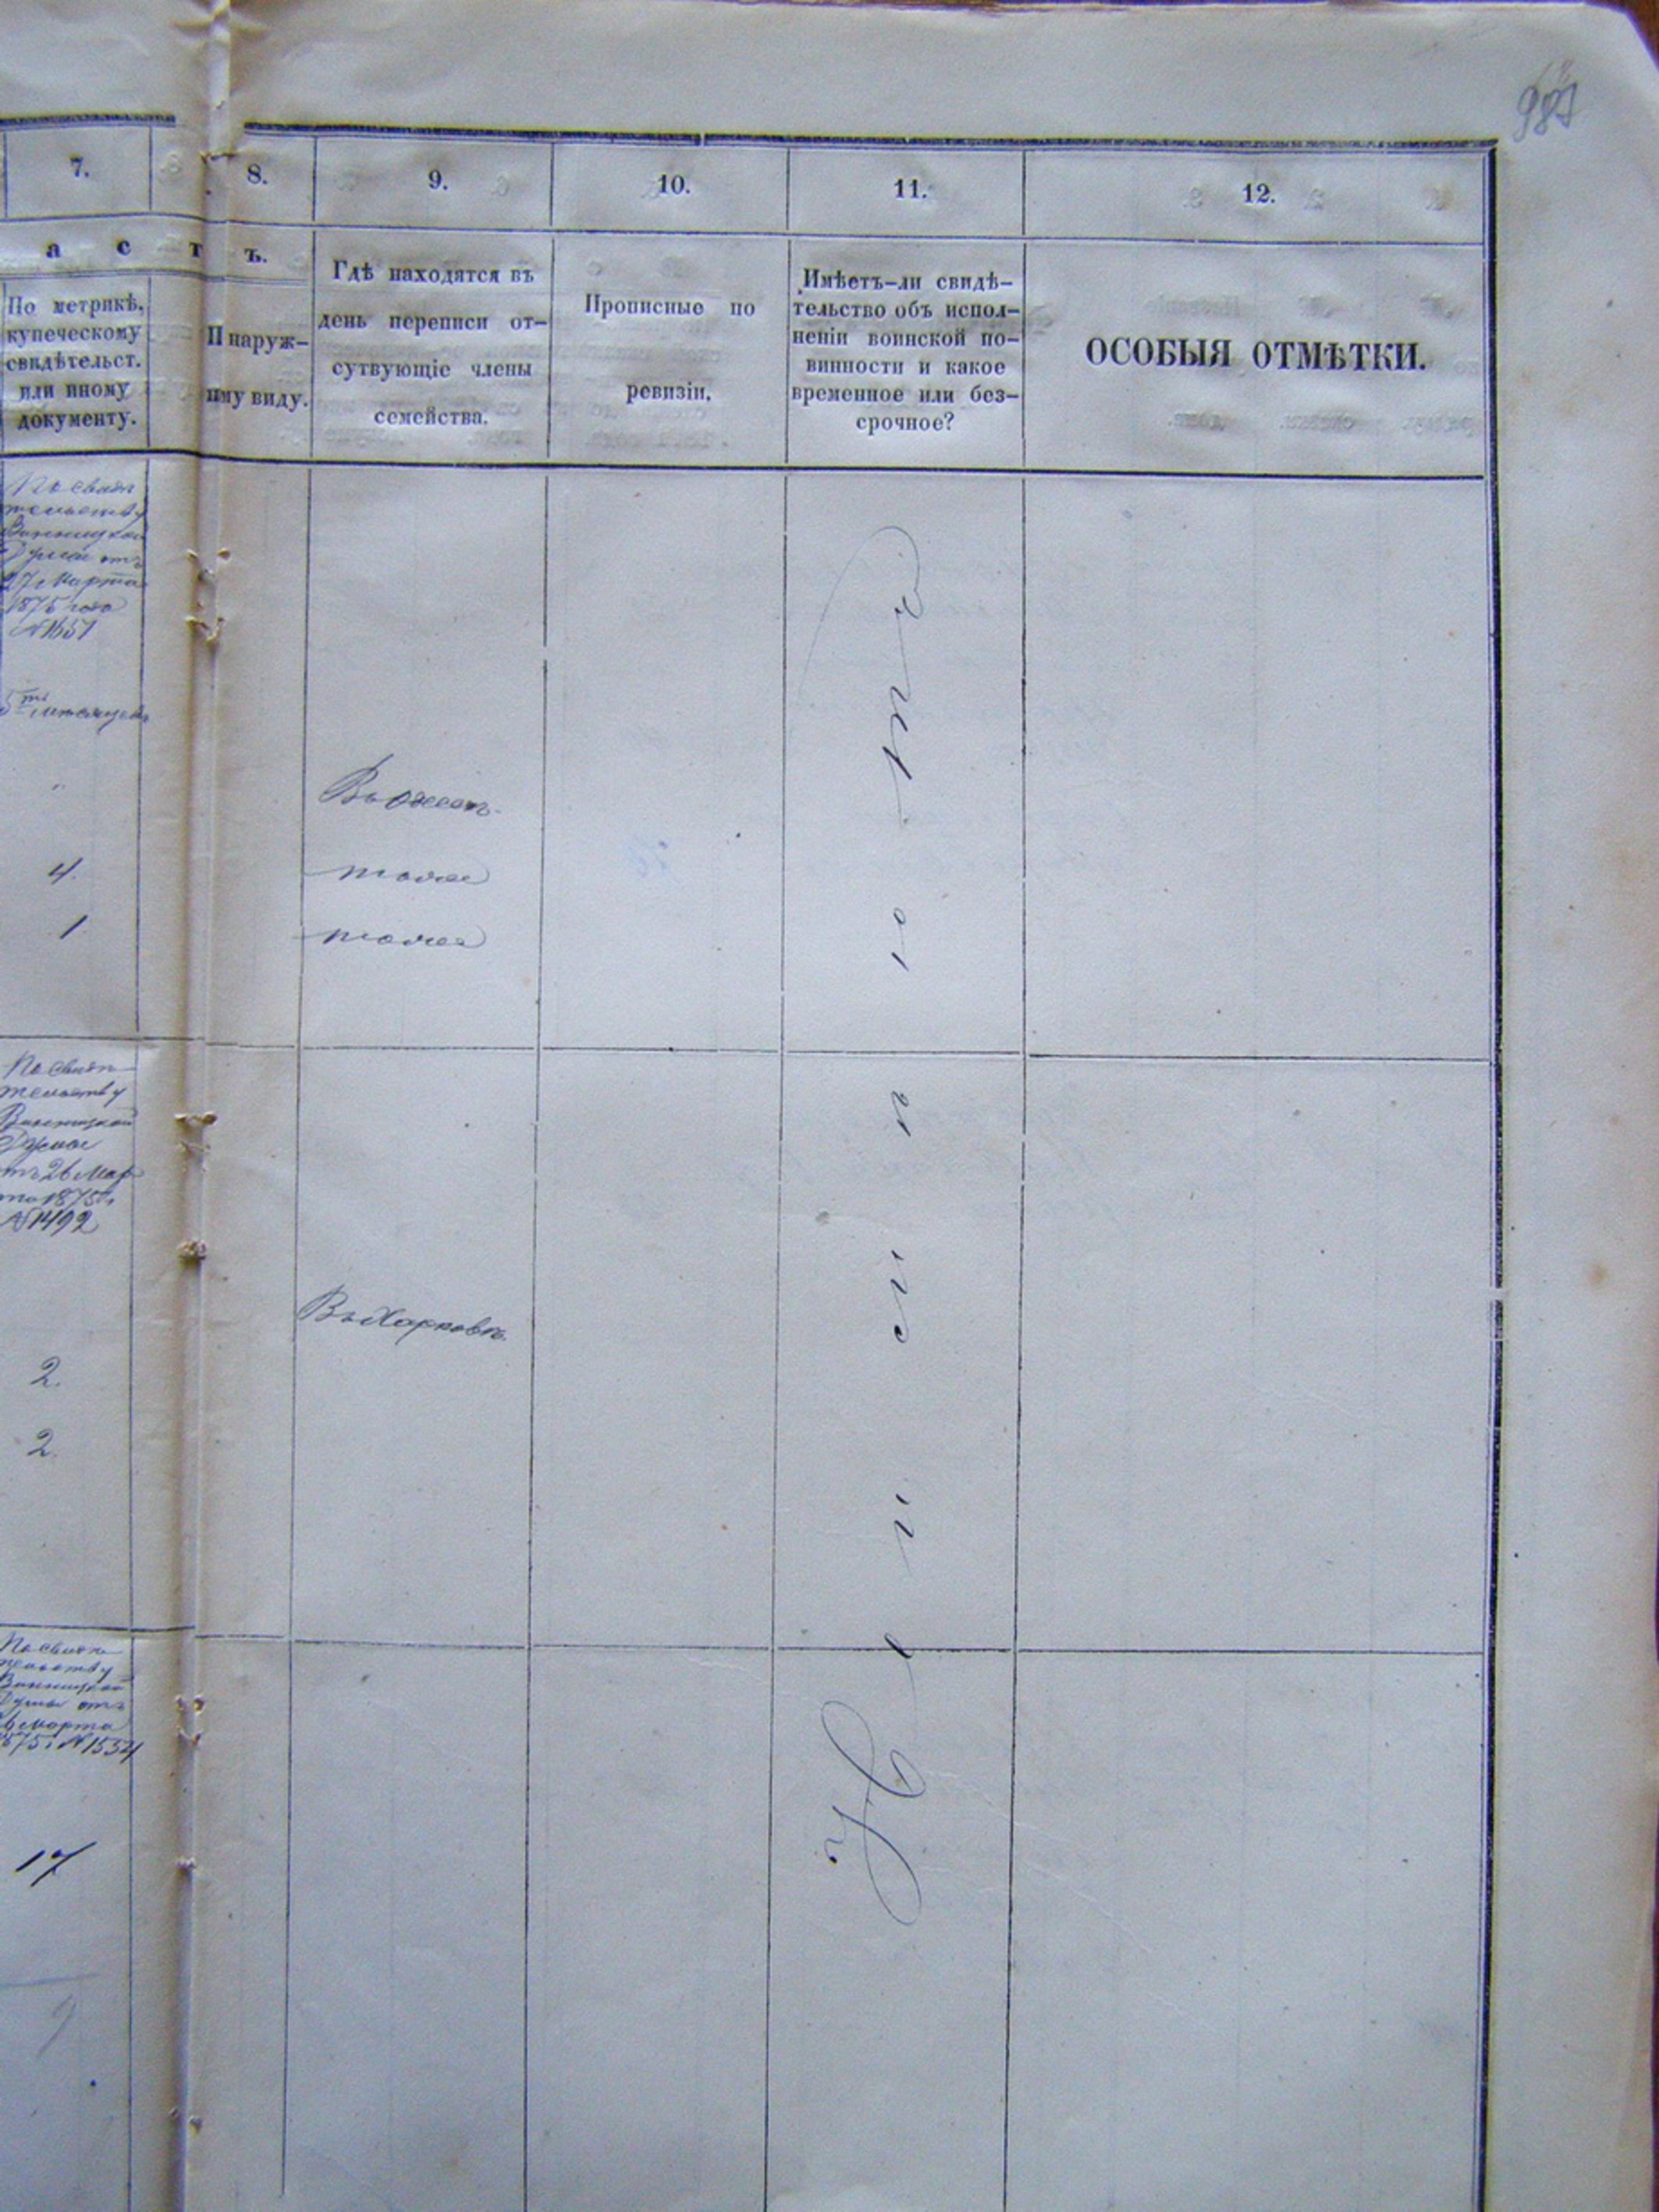 7.
8.
9.
10.
11.
12.
а с т ъ.
По метрикѣ,
купеческому
свидѣтельст.
или иному
документу.
П наруж-
ному виду.
Гдѣ находятся въ
день переписи от-
сутвующіе члены
семейства.
Прописные по
ревизіи.
Имѣетъ-ли свидѣ-
тельство объ испол-
неніи воинской по-
винности и какое
временное или без-
срочное?
ОСОБЫЯ ОТМѢТКИ.
По свидѣ
тельству
Винницкой
Думы отъ
27 Марта
1875 года
№ 1651
5ти мѣсяцевъ
Въ Одессѣ.
4.
тоже
1
тоже
По свидѣ
тельству
Винницкой
Думы
отъ 26 Мар
та 1875 г.
№ 1492
Въ Харьковѣ.
2.
2.
По свидѣ
тельству
Винницкой
Думы отъ
Марта
1875 г. № 1554
17
Не имѣютъ